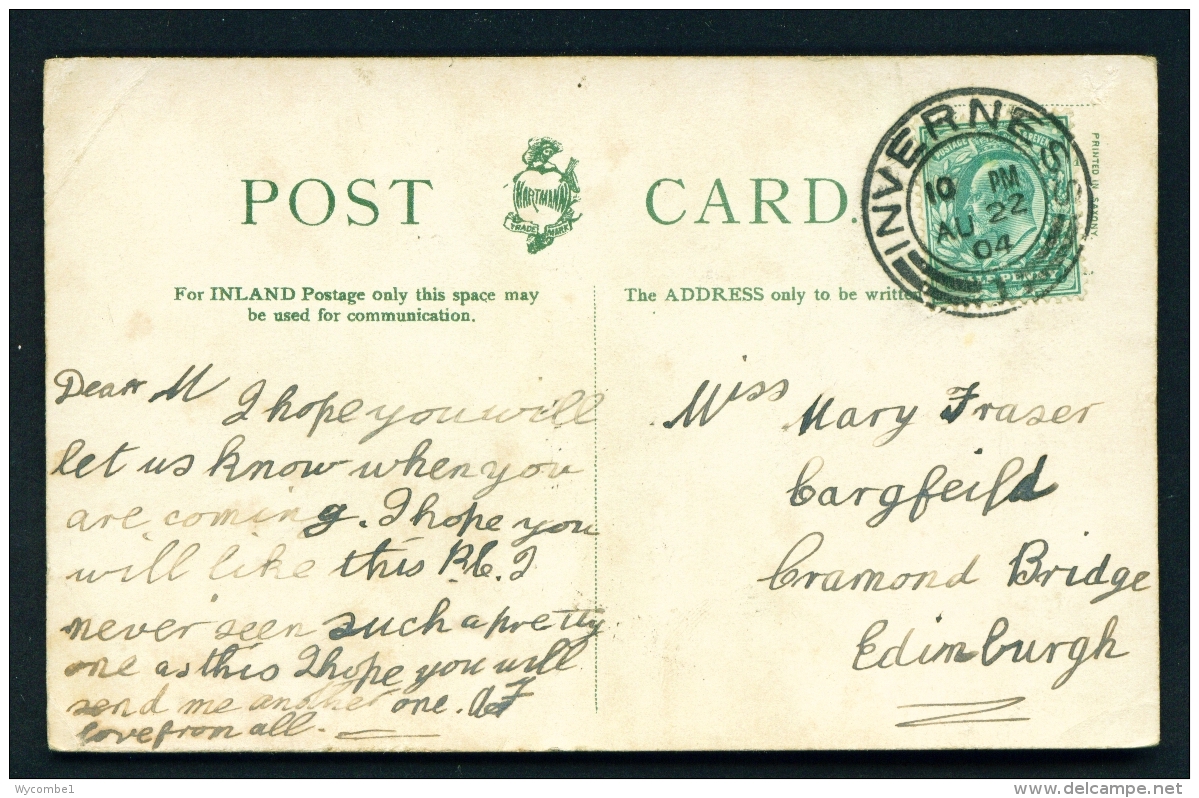 POST CARD.
HARTMANN
TRADE MARK
INVERNESS
10 PM
AU 22
04
1
POSTAGE & REVENUE
HALF PENNY
PRINTED IN SAXONY.
For INLAND Postage only this space may
be used for communication.
The ADDRESS only to be written
Dear M I hope you will
let us know when you
are coming. I hope you
will like this P.C. I
never seen such a pretty
one as this I hope you will
send me another one.
love from all.
Miss Mary Fraser
Cargfeild
Cramond Bridge
Edinburgh
Wycombe1
delcampe.net